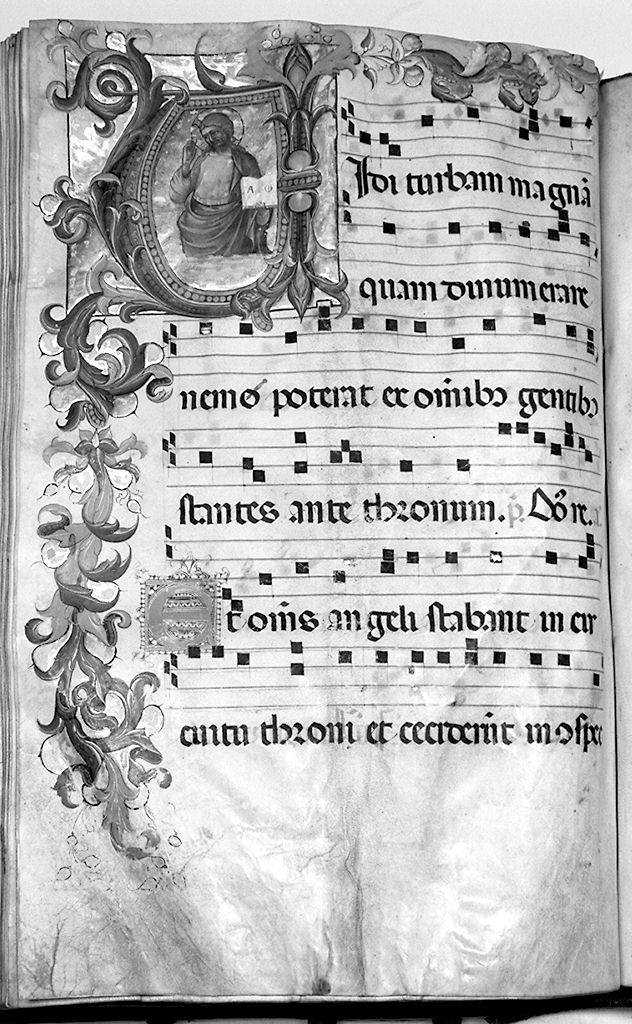 A Ω
Vidi turbam magnā
quam dinumerare
nemo poterat ex om̄ibꝫ gentibꝫ
stantes ante thronum. p̄. Dō re.
Et om̄s angeli stabant in cir
cuitu throni et cecider̄t in ↄspec